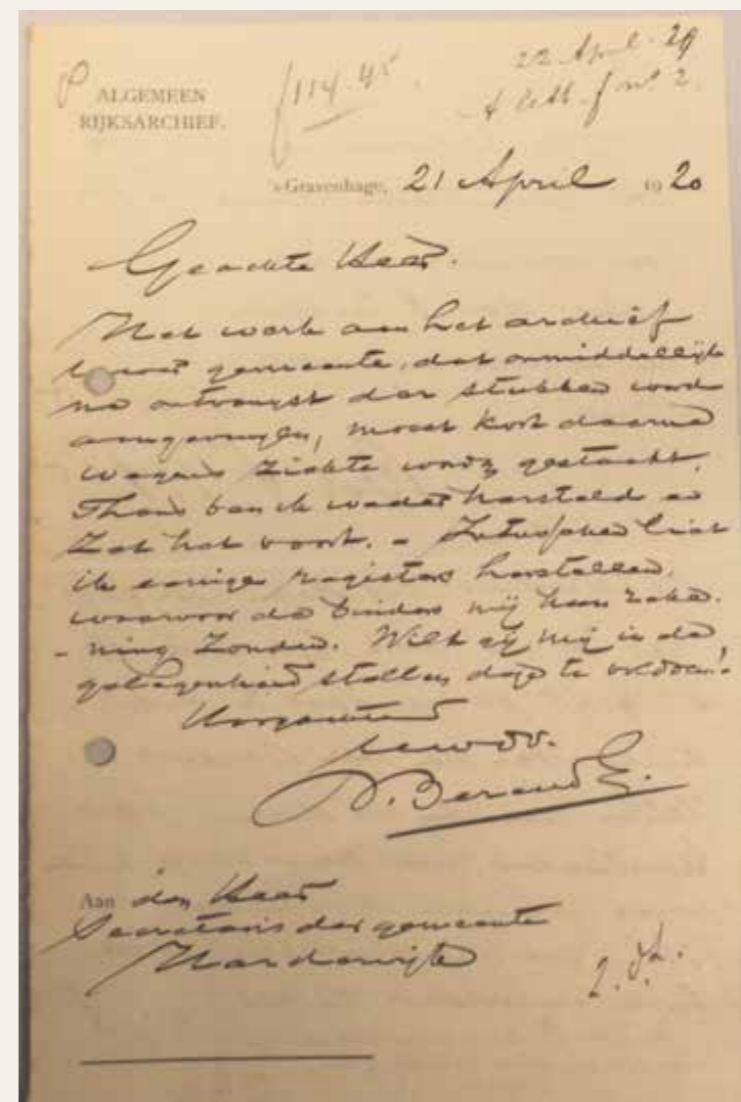 ALGEMEEN
RIJKSARCHIEF.
f 114.45.
22 April. 20
's-Gravenhage, 21 April 1920
Geachte Heer.
Het werk aan het archief
gemeente, dat onmiddellijk
na ontvangst der stukken werd
aangevangen, moest kort daarna
wegens ziekte word gestaakt.
Thans ben ik weder hersteld en
zet het voort. - Intusschen liet
ik eenige registers herstellen,
waarvoor de binders mij hun reke-
-ning zonden. Wilt gij mij in de
gelegenheid stellen deze te voldoen?
Hoogachtend
Uw dv.
Aan den Heer
Secretaris der gemeente
Harderwijk